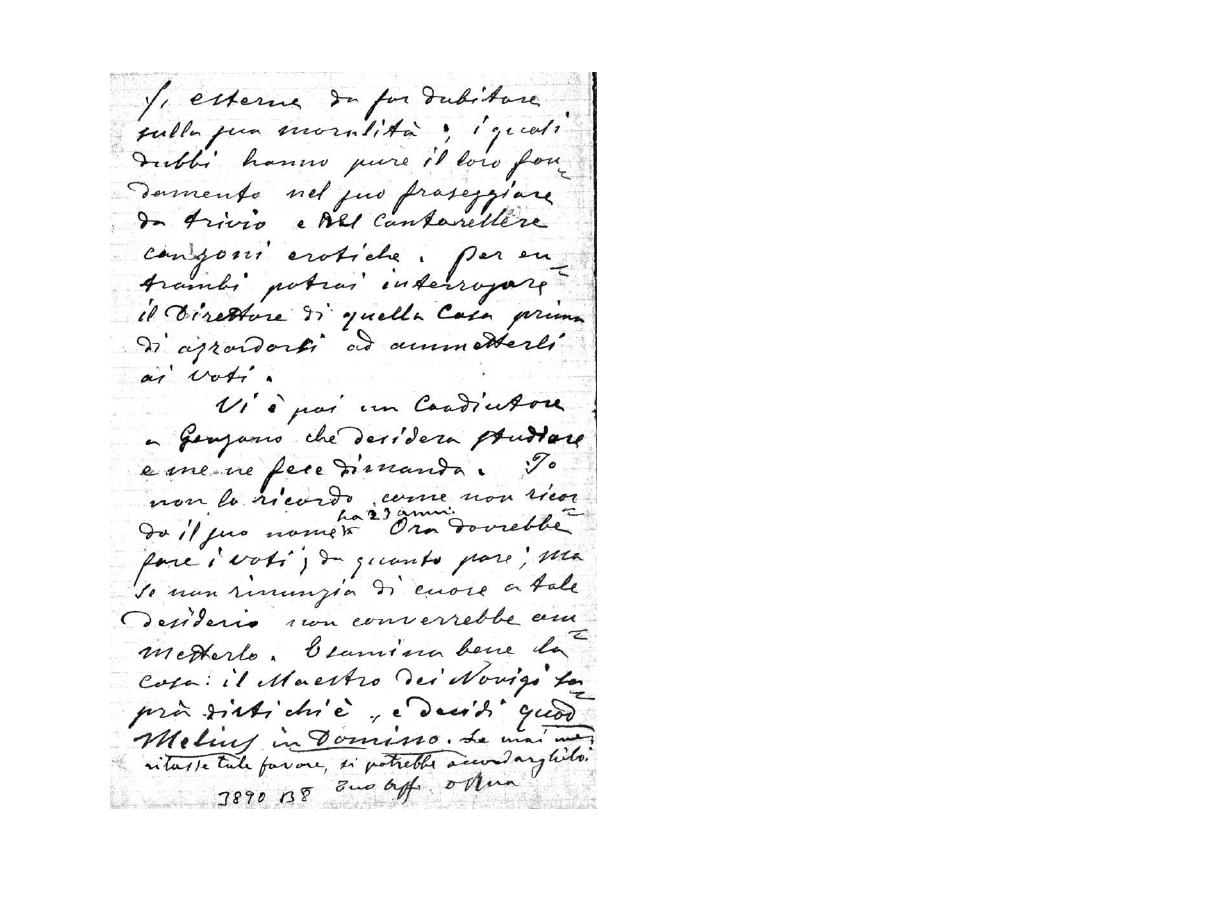 si esterne da far dubitare
sulla sua moralità; i quali
dubbi hanno pure il loro fon=
damento nel suo fraseggiare
da trivio e nel cantarellare
canzoni erotiche. Per en=
trambi potrai interrogare
il Direttore di quella Casa prima
di azzardarti ad ammetterli
ai voti.
Vi è poi un Coadiutore
a Genzano che desidera studiare
e me ne fece dimanda. Io
non lo ricordo, come non ricor=
ha 23 anni.
do il suo nome Ora dovrebbe
fare i voti, da quanto pare; ma
se non rinunzia di cuore a tale
desiderio non converrebbe am=
metterlo. Esamina bene la
cosa: il Maestro dei Novizi sa=
prà dirti chi è, e decidi quod
Melius in Domino. Se mai me=
ritasse tale favore, si potrebbe accordarglielo.
Tuo aff.
3890 B8